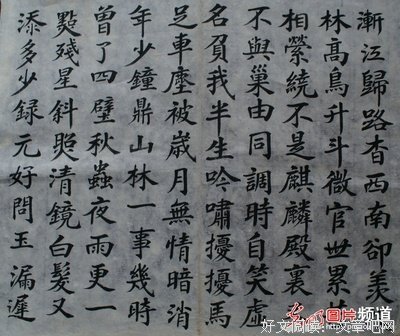 漸江歸路杳西南卻羨
林高鳥升斗微官世累
相縈繞不是麒麟殿裏
不與巢由同調時自笑虛
名負我半生吟嘯擾擾馬
足車塵被歲月無情暗消
年少鐘鼎山林一事幾時
曾了四壁秋蟲夜雨更一
點殘星斜照清鏡白髮又
添多少録元好問玉漏遲
光明图片频道